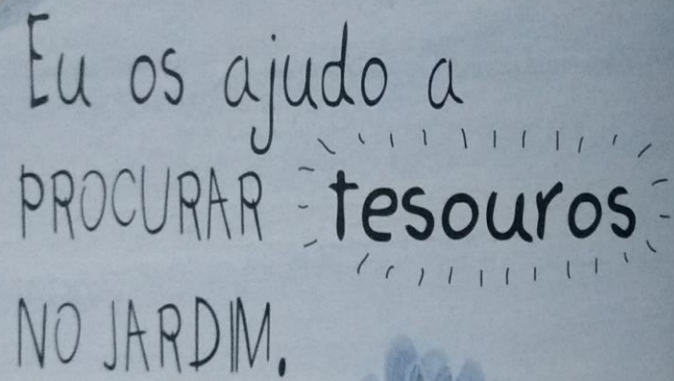 Eu os ajudo a
PROCURAR tesouros
NO JARDIM.